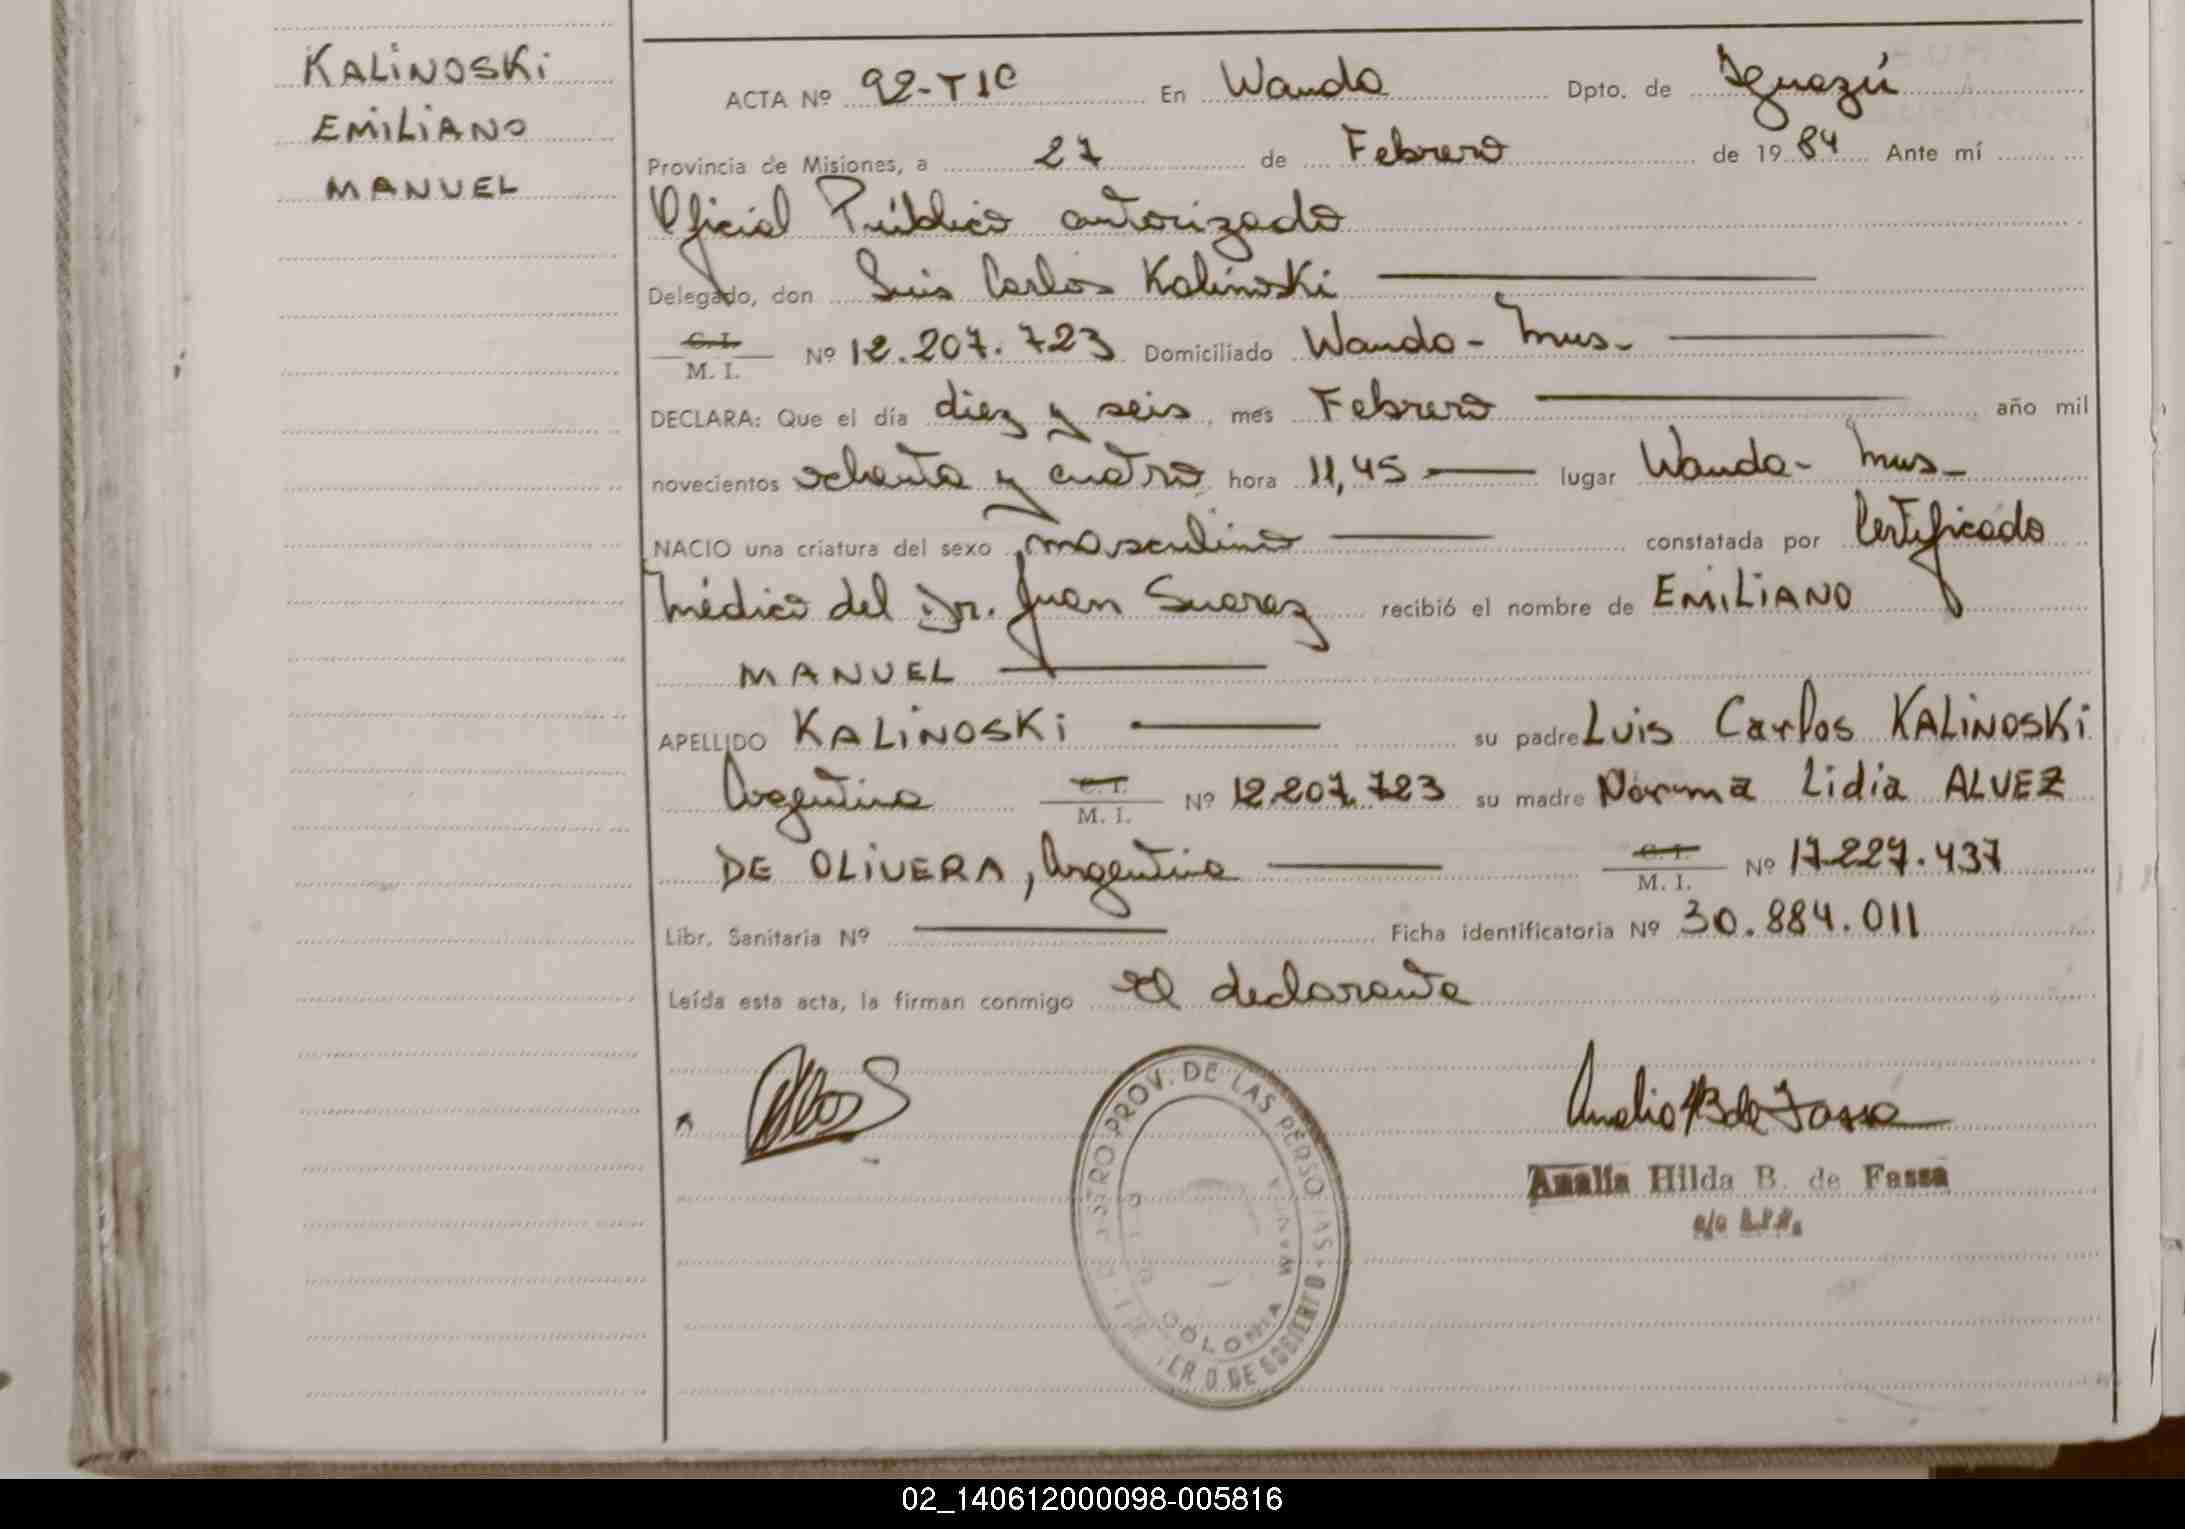 KALINOSKI
EMILIANO
MANUEL
ACTA Nº 92-T1C En Wanda Dpto. de Iguazú
Provincia de Misiones, a 27 de Febrero de 1984 Ante mí
Oficial Público autorizado
Delegado, don Luis Carlos Kalinoski
C. I. M. I. Nº 12.207.723 Domiciliado Wanda - Mns.-
DECLARA: Que el día diez y seis, mes Febrero, año mil
novecientos ochenta y cuatro hora 11,45 lugar Wanda - Mns.-
NACIO una criatura del sexo masculino constatada por Certificado
Médico del Dr. Juan Suarez recibió el nombre de EMILIANO
MANUEL
APELLIDO KALINOSKI su padre Luis Carlos KALINOSKI
Argentina C. I. M. I. Nº 12.207.723 su madre Norma Lidia ALVEZ
DE OLIVERA, Argentina C. I. M. I. Nº 17.227.437
Libr. Sanitaria Nº Ficha identificatoria Nº 30.884.011
Leída esta acta, la firman conmigo el declarante
PROV. DE LAS PERSONAS
COLONIA
DE GOBIERNO
Analía Hilda B. de Fassa
02_140612000098-005816